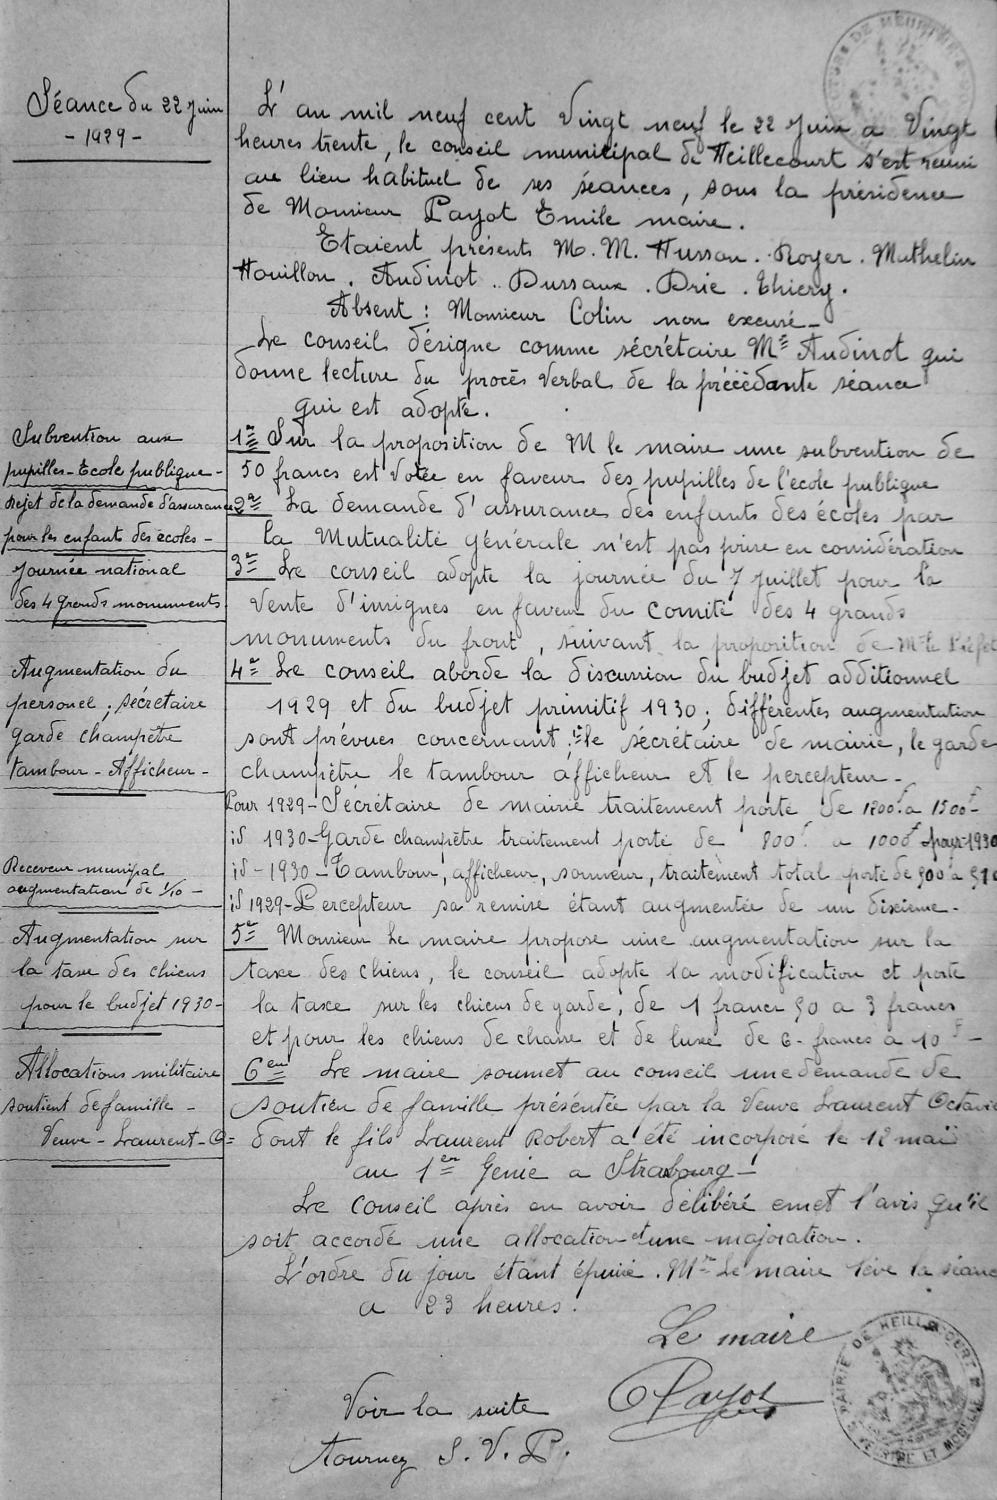 Séance du 22 Juin
- 1929 -
L'an mil neuf cent Vingt neuf le 22 Juin a Vingt
heures trente, le conseil municipal de Heillecourt s'est réuni
au lieu habituel de ses séances, sous la présidence
de Monsieur Payot Emile maire.
Etaient présents M. M. Husson. Royer. Mathelin
Houillon. Audinot.. Dussaux. Drie. Thiery.
Absent : Monsieur Colin non excusé -
Le conseil désigne comme sécrétaire Mr Audinot qui
donne lecture du procès verbal de la précédante séance
qui est adopté.
Subvention aux
pupilles - Ecole publique -
1er Sur la proposition de M le maire une subvention de
50 francs est Votée en faveur des pupilles de l'école publique
Rejet de la demande d'assurance
pour les enfants des écoles -
2e La demande d'assurance des enfants des écoles par
la Mutualité générale n'est pas prise en considération
Journée national
des 4 grands monuments
3e Le conseil adopte la journée du 7 Juillet pour la
Vente d'insignes en faveur du Comité des 4 grands
monuments du front, suivant la proposition de Mr le Préfet
Augmentation du
personel ; sécrétaire
garde champêtre
tambour - Afficheur -
4e Le conseil aborde la discussion du budjet additionnel
1929 et du budjet primitif 1930 ; différentes augmentation
sont prévues concernant : le sécrétaire de mairie, le garde
champêtre le tambour afficheur et le percepteur -
Pour 1929 - Sécrétaire de mairie traitement porté de 1200f a 1500f -
id 1930 - Garde champêtre traitement porté de 800f a 1000f pour 1930
id - 1930 - Tambour, afficheur, sonneur, traitement total porté de 500 a 510
Receveur munipal
augmentation de 1/10 -
id 1929 - Percepteur sa remise étant augmentée de un dixième -
Augmentation sur
la taxe des chiens
pour le budjet 1930 -
5e Monsieur le maire propose une augmentation sur la
taxe des chiens, le conseil adopte la modification et porte
la taxe sur les chiens de garde, de 1 franc 50 a 3 francs
et pour les chiens de chasse et de luxe de 6 - francs à 10 F -
Allocations militaire
soutient de famille -
Veuve - Laurent - O =
6em Le maire soumet au conseil une demande de
soutien de famille présentée par la Veuve Laurent Octavie
dont le fils Laurent Robert a été incorporé le 12 mai
au 1er Génie a Strasbourg -
Le Conseil après en avoir délibéré émet l'avis qu'il
soit accordé une allocation et une majoration.
L'ordre du jour étant épuisé. Mr Le maire lève la séance
a 23 heures.
Le maire
Payot
MAIRIE DE HEILLECOURT
MEURTHE ET MOSELLE
Voir la suite
tournez S. V. P.